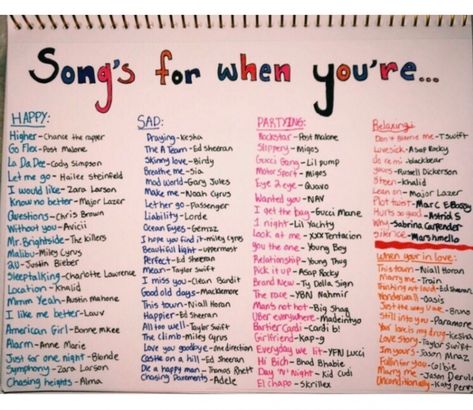 Song's for when you're...
HAPPY:
Higher-Chance the rapper
Go Flex-Post Malone
La Da Dee-Cody Simpson
Let me go-Hailee Steinfeld
I would like-Zara Larson
Know no better-Major Lazer
Questions-Chris Brown
Without you-Avicii
Mr. Brightside-The killers
Malibu-Miley Cyrus
2U-Justin Bieber
Sleeptalking-Charlotte Lawrence
Location-Khalid
Mmm Yeah-Austin Mahone
I like me better-Lauv
American Girl-Bonnie Mckee
Alarm-Anne Marie
Just for one night-Blonde
Symphony-Zara Larson
Chasing heights-Alma
SAD:
Praying-Kesha
The A Team-Ed Sheeran
Skinny love-Birdy
Breathe me-Sia
Mad world-Gary Jules
Make me-Noah Cyrus
Let her go-Passenger
Liability-Lorde
Ocean Eyes-
I hope you find it-miley Cyrus
Beautiful light-uppermost
Perfect-Ed Sheeran
Mean-Taylor Swift
I miss you-Clean Bandit
Good old days-Macklemore
This town-Niall Horan
Happier-Ed Sheeran
All too well-Taylor Swift
The climb-miley Cyrus
Love you goodbye-One direction
Castle on a hill-Ed Sheeran
Die a happy man-Thomas Rhett
Chasing Pavements-Adele
PARTYING:
Rockstar-Post Malone
Slippery-Migos
Gucci Gang-Lil pump
Motor Sport-Migos
Eye 2 eye-Quavo
Wanted you-NAV
I get the bag-Gucci Mane
1 night-Lil Yachty
Look at me-XXXTentacion
you the one-Young Boy
Relationship-Young Thug
Pick it up-Asap Rocky
Brand New-Ty Dolla $ign
The race-YBN Nahmir
Man's not hot-Big Shaq
Uber everywhere-Madeintyo
Bartier Cardi-Cardi b
Girlfriend-Kap-g
Everyday we lit-YFN Lucci
Hi Bich-Bhad Bhabie
Day 'N' Night-Kid Cudi
El chapo-Skrillex
Relaxing:
Don't blame me-T swift
Lovesick-Asap Rocky
do re mi-blackbear
yours-Russell Dickerson
8teen-Khalid
Lean on-Major Lazer
Plot twist-Marc E Bassy
Hurts so good-Astrid S
Why-Sabrina Carpender
Silence-Marshmello
When your in love:
This town-Niall Horan
Marry me-Train
Thinking out loud-Ed Sheeran
Wonderwall-Oasis
Just the way U are-Bruno
Still into you-Paramore
Your love is my drug-Kesha
Love story-Taylor Swift
Im yours-Jason Mraz
Fallin for you-Colbie
Marry me-Jason Derulo
Unconditionally-Katy perry